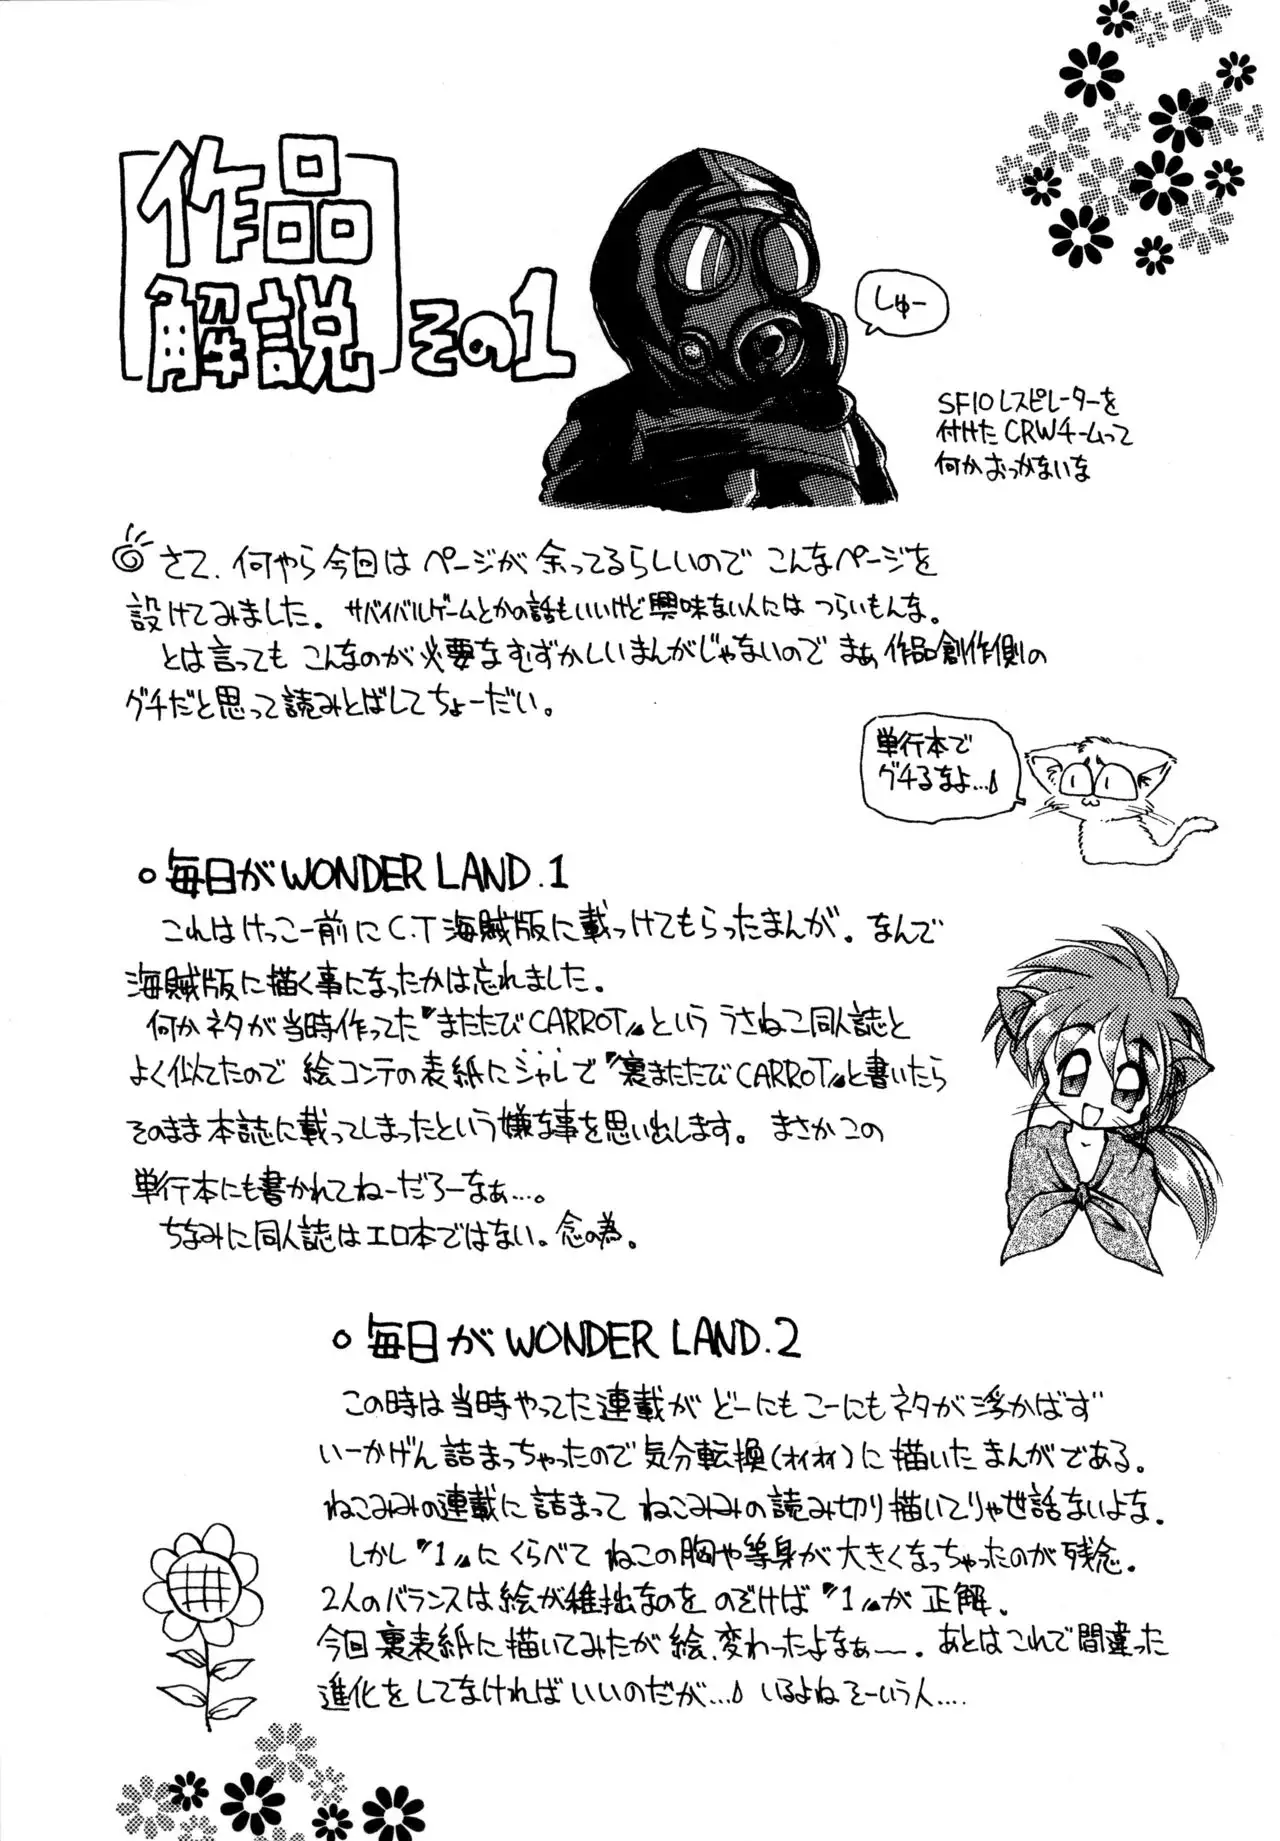 作品
解説 その1
しゅー
SF10レスピレーターを
付けたCRWチームって
何かおっかないな
さて、何やら今回はページが余ってるらしいので こんなページを
設けてみました。サバイバルゲームとかの話もいいけど興味ない人にはつらいもんな。
とは言っても こんなのが必要なむずかしいまんがじゃないので まぁ作品創作側の
グチだと思って読みとばしてちょーだい。
単行本で
グチるなよ…
○毎日がWONDER LAND.1
これはけっこー前にC.T海賊版に載っけてもらったまんが。なんで
海賊版に描く事になったかは忘れました。
何かネタが当時作ってた『またたびCARROT』という うさねこ同人誌と
よく似てたので 絵コンテの表紙にシャレで『裏またたびCARROT』と書いたら
そのまま本誌に載ってしまったという嫌な事を思い出します。まさかこの
単行本にも書かれてねーだろーなぁ…。
ちなみに同人誌はエロ本ではない。念の為。
○毎日がWONDER LAND.2
この時は当時やってた連載がどーにもこーにもネタが浮かばず
いーかげん詰まっちゃったので気分転換(オイオイ)に描いたまんがである。
ねこみみの連載に詰まって ねこみみの読み切り描いてりゃ世話ないよな。
しかし『1』にくらべて ねこの胸や等身が大きくなっちゃったのが残念。
2人のバランスは絵が稚拙なのを のぞけば『1』が正解。
今回裏表紙に描いてみたが絵、変わったよなぁーー。あとはこれで間違った
進化をしてなければいいのだが… いるよねそーいう人….